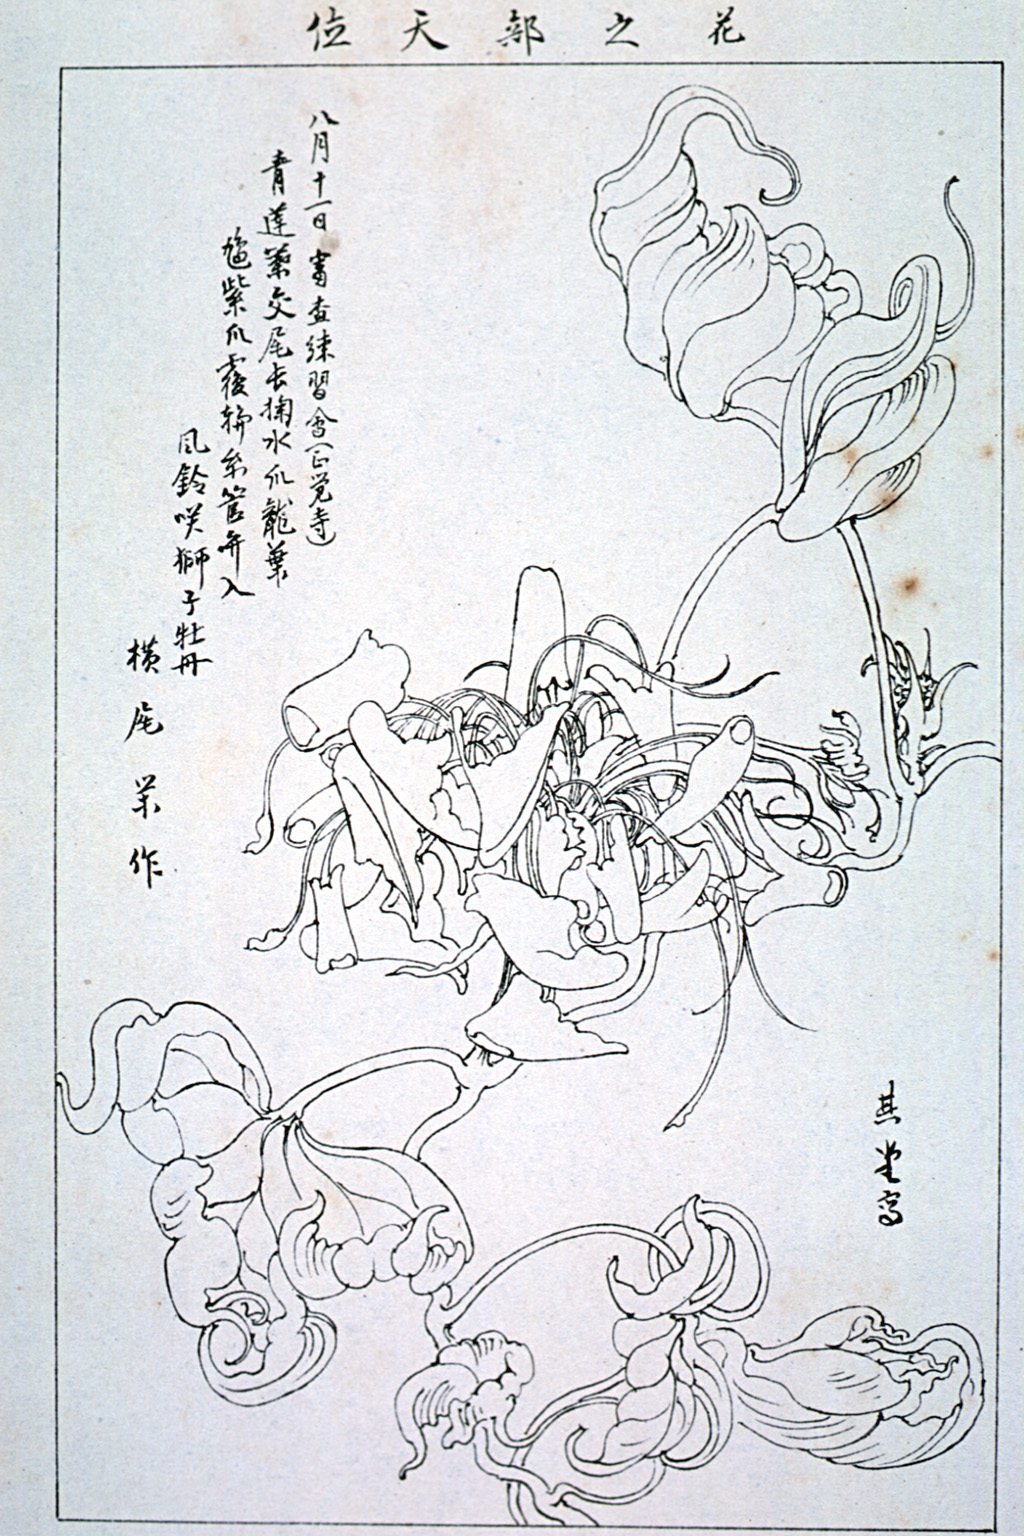 花之部天位
八月十一日審査練習會(正覚寺)
青蓮葉交尾長掬水爪龍葉
紫爪覆輪糸管弁入
風鈴咲獅子牡丹
横尾栄作
其堂写